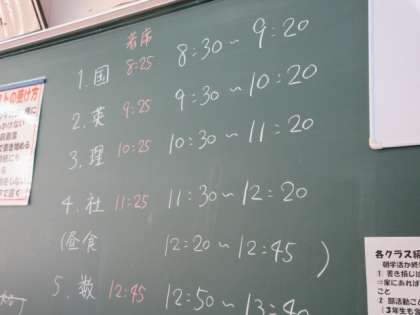 着席
1. 国 8:25 8:30〜9:20
2. 英 9:25 9:30〜10:20
3. 理 10:25 10:30〜11:20
4. 社 11:25 11:30〜12:20
(昼食 12:20〜12:45)
5. 数 12:45 12:50〜13:40
トの受け方
各クラス
朝学活が終
1 書き損じ
⇒家にあれば
こと
2 部活動こ
(3年生も